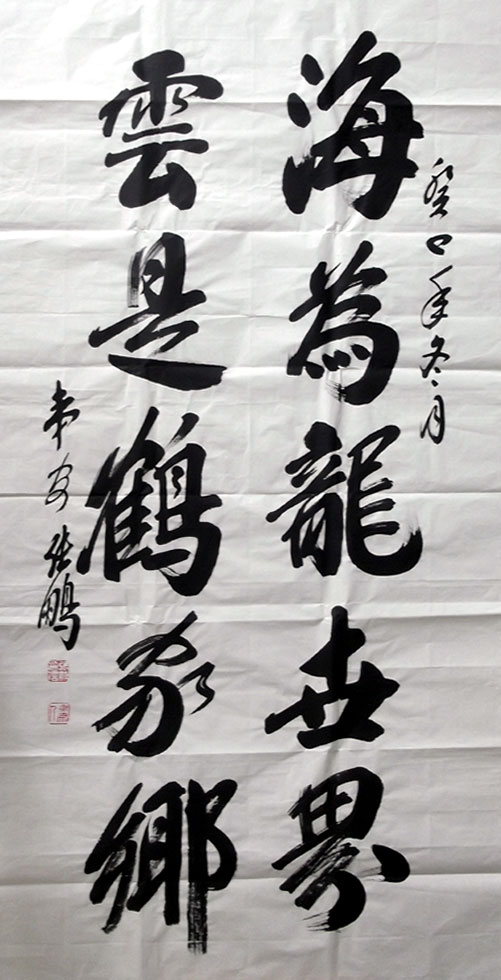 癸巳年冬月
海為龍世界
雲是鶴家鄉
張鵬